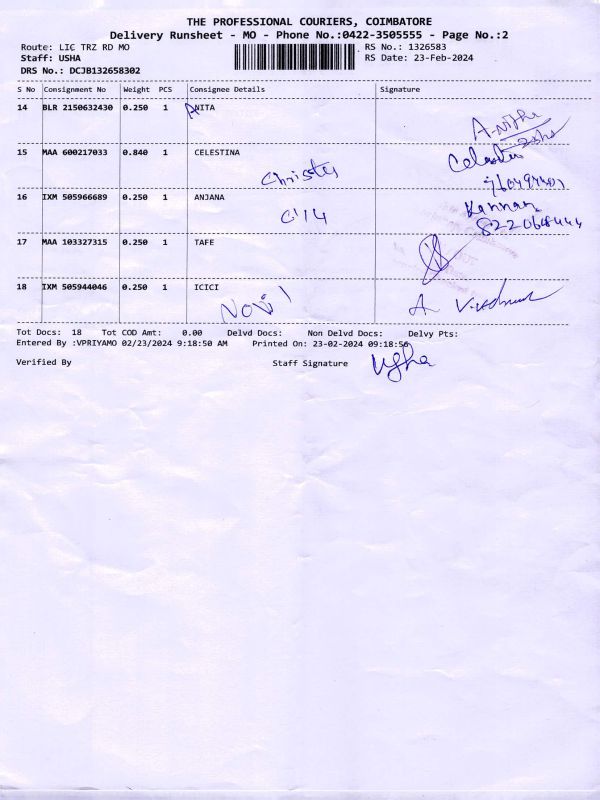 THE PROFESSIONAL COURIERS, COIMBATORE
Delivery Runsheet - MO - Phone No.:0422-3505555 - Page No.:2
Route: LIC TRZ RD MO RS No.: 1326583
Staff: USHA RS Date: 23-Feb-2024
DRS No.: DCJB132658302
S No Consignment No Weight PCS Consignee Details Signature
14 BLR 2150632430 0.250 1 ANITA
Anitha
15 MAA 600217033 0.840 1 CELESTINA
16 IXM 505966689 0.250 1 ANJANA Kannan
17 MAA 103327315 0.250 1 TAFE
18 IXM 505944046 0.250 1 ICICI
Tot Docs: 18 Tot COD Amt: 0.00 Delvd Docs: Non Delvd Docs: Delvy Pts:
Entered By :VPRIYAMO 02/23/2024 9:18:50 AM Printed On: 23-02-2024 09:18:56
Verified By Staff Signature Usha